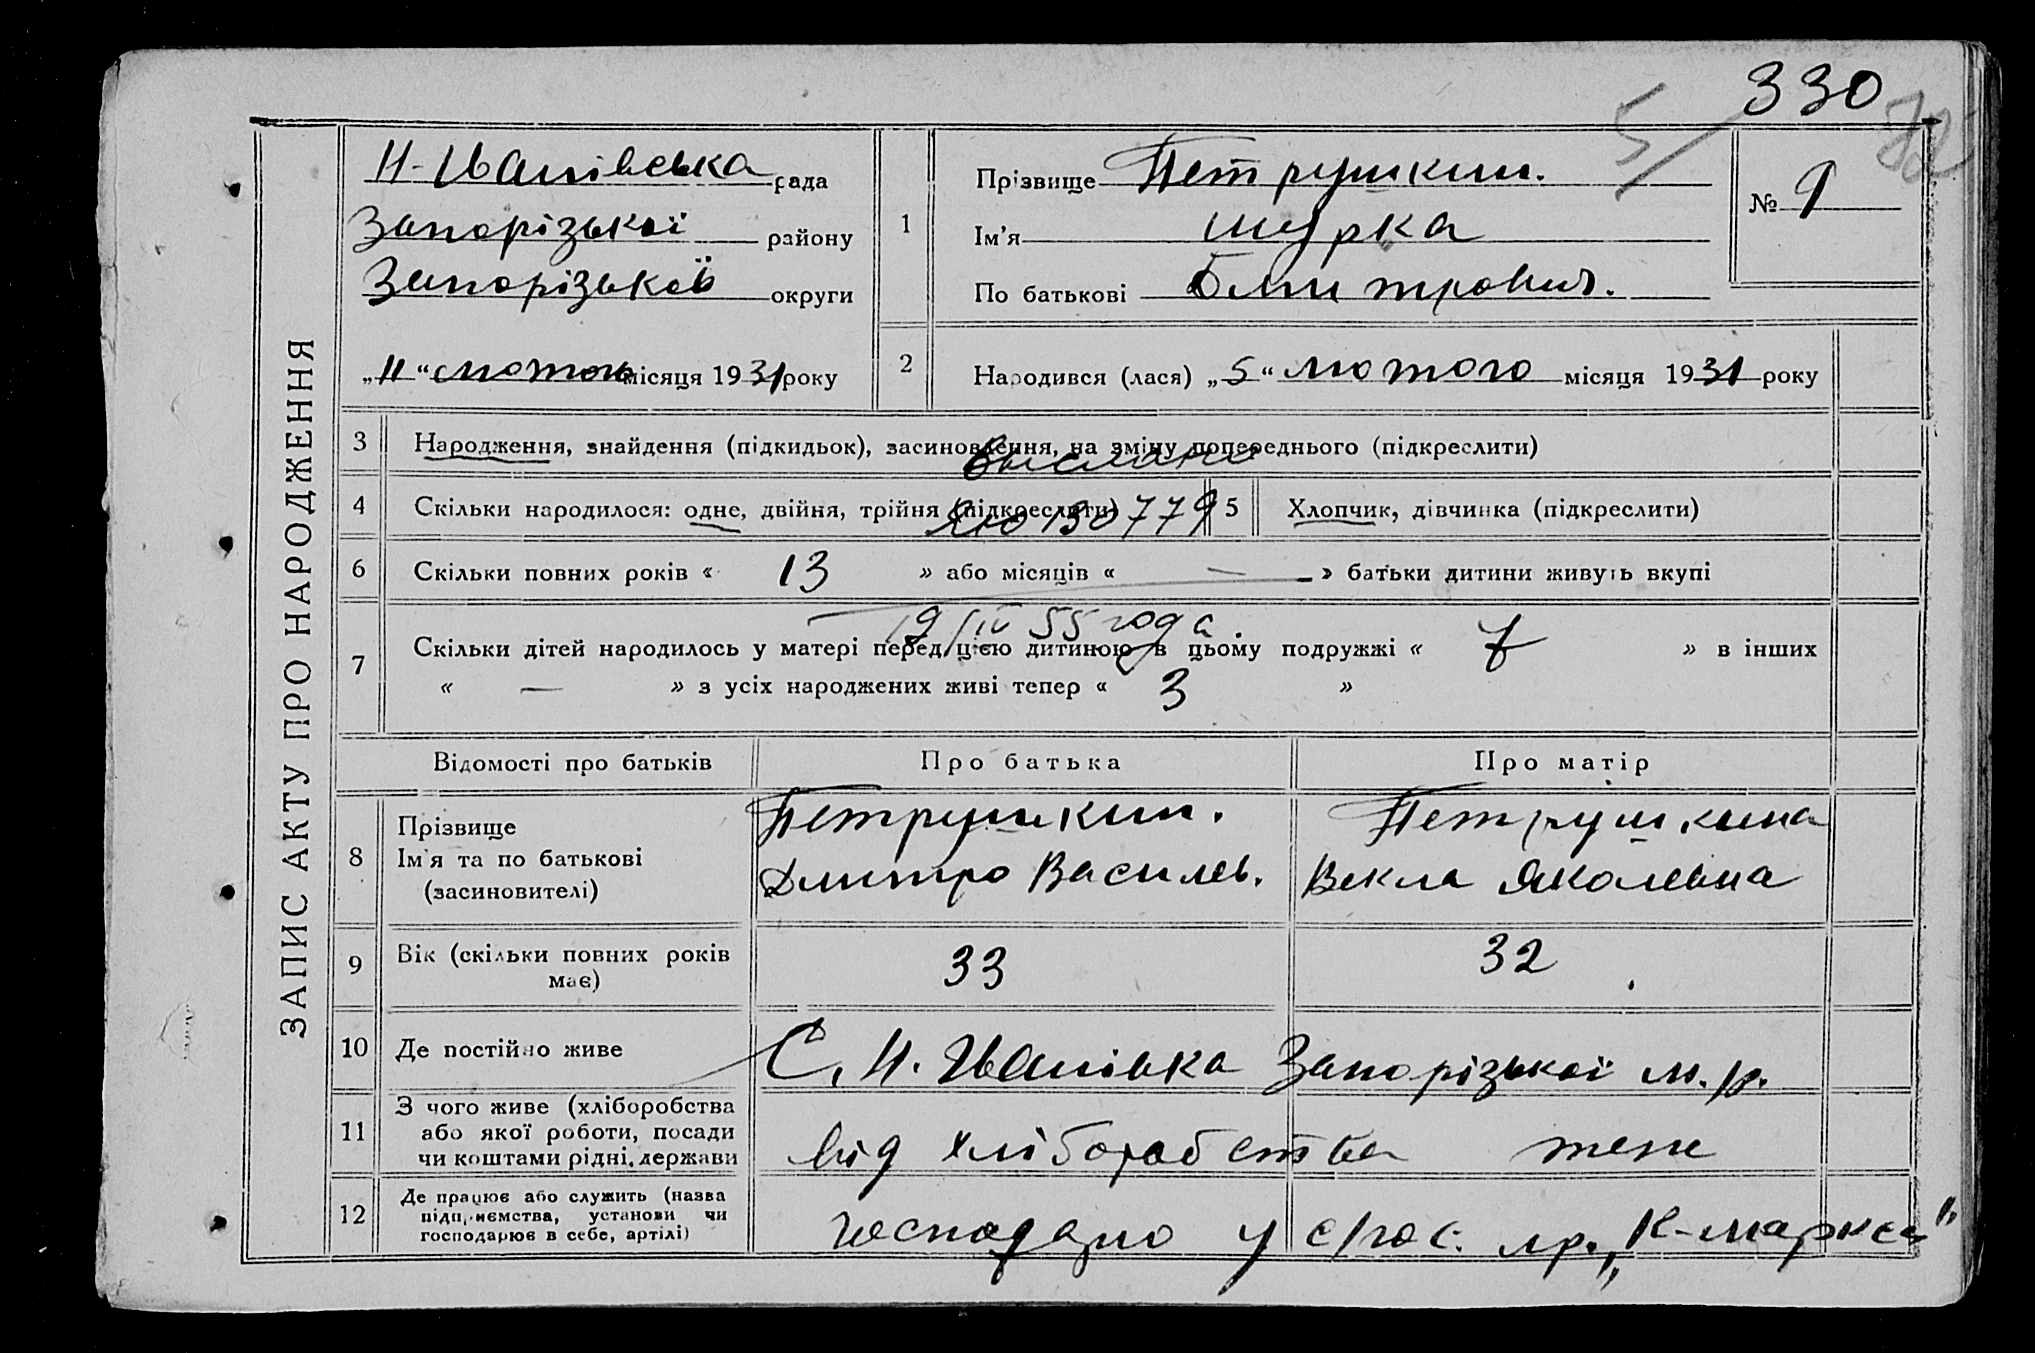 330
ЗАПИС АКТУ ПРО НАРОДЖЕННЯ
Н-Іванівська рада
Запорізької району
Запорізької округи
„11“ лютого місяця 1931 року
1
Прізвище Петрушкин.
Ім'я Шурка
По батькові Дмитрович.
№ 9
2
Народився (лася) „5“ лютого місяця 1931 року
3 Народження, знайдення (підкидьок), засиновлення, на зміну попереднього (підкреслити)
выслано
4 Скільки народилося: одне, двійня, трійня (підкреслити) 5 Хлопчик, дівчинка (підкреслити)
130779
6 Скільки повних років « 13 » або місяців « — » батьки дитини живуть вкупі
19/IV 55 года.
7 Скільки дітей народилось у матері перед цією дитиною в цьому подружжі « 7 » в інших
« — » з усіх народжених живі тепер « 3 »
Відомості про батьків Про батька Про матір
8 Прізвище
Ім'я та по батькові
(засиновителі)
Петрушкин.
Дмитро Василев.
Петрушкина
Векла Яколевна
9 Вік (скільки повних років має)
33 32
10 Де постійно живе
С. Н. Іванівка Запорізької м.р.
11 З чого живе (хліборобства
або якої роботи, посади
чи коштами рідні, держави
від хліборобства теж
12 Де працює або служить (назва
підприємства, установи чи
господарює в себе, артілі)
у с/гос. „К-Маркса“